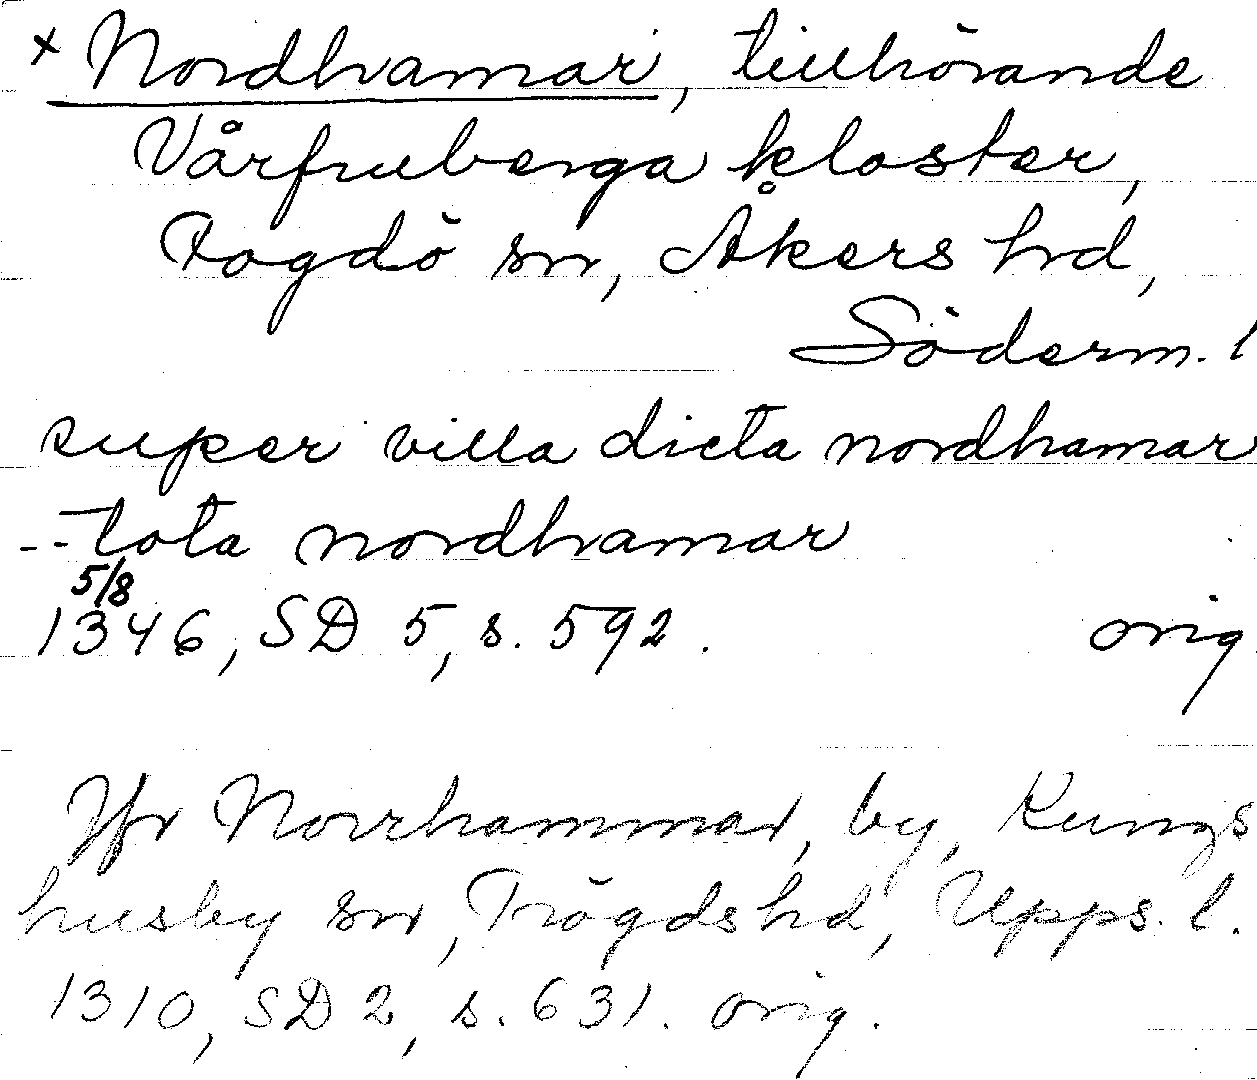 × Nordhamar, tillhörande
Vårfruberga kloster,
Fogdö sn, Åkers hd,
Söderm. l
super villa dicta nordhamar
-- tota nordhamar
5/8
1346, SD 5, s. 592. orig
Jfr Norrhammar, by, Kungs
husby sn, Trögds hd, Upps. l.
1310, SD 2, s. 631. orig.